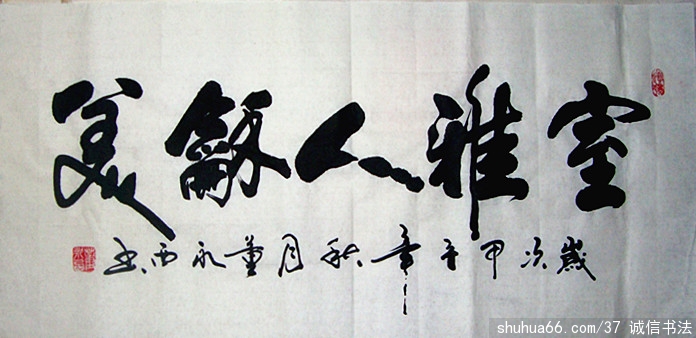 室雅人龢美
歲次甲午年秋月董永西书
shuhua66.com/37 诚信书法